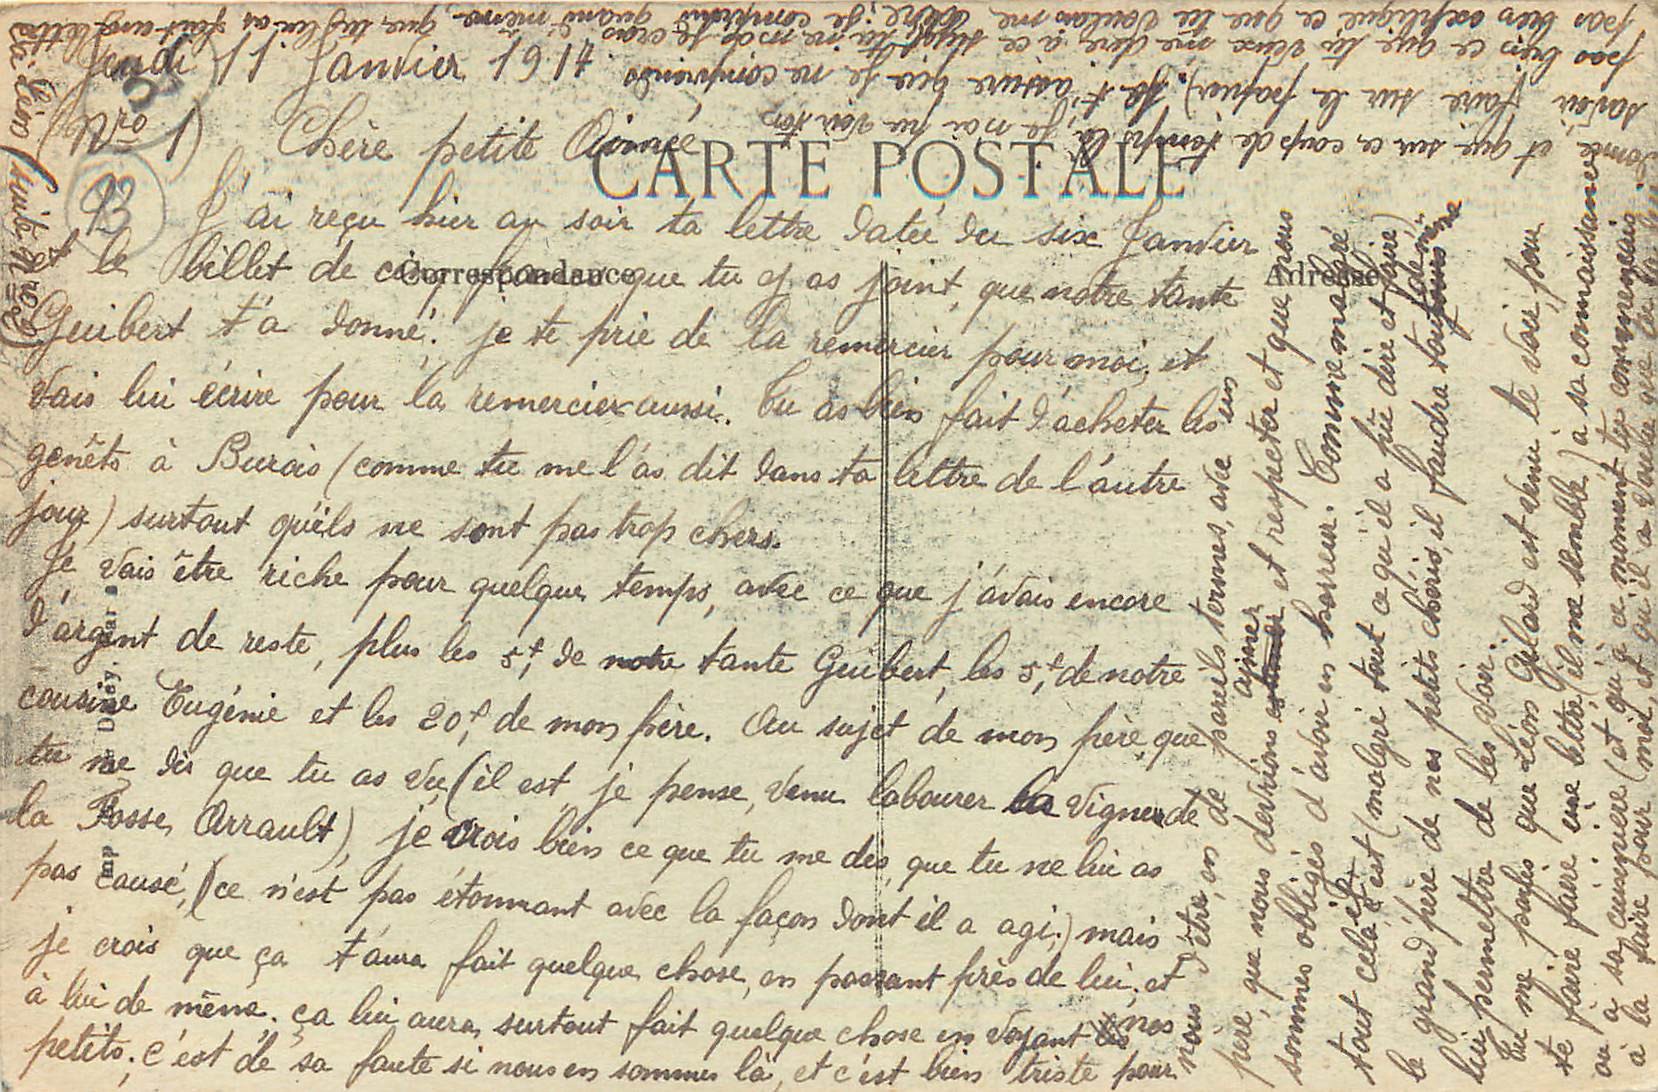 Jeudi 11 Janvier 1917.
(Nro 1) Chère petite Aimée
CARTE POSTALE
93
J'ai reçu hier au soir ta lettre datée du six Janvier
Correspondance
Adresse
et le billet de cinq francs que tu y as joint, que notre tante
Guibert t'a donné; je te prie de la remercier pour moi, et
vais lui écrire pour la remercier aussi. Tu as bien fait d'acheter les
genêts à Burais (comme tu me l'as dit dans ta lettre de l'autre
jour) surtout qu'ils ne sont pas trop chers.
Je vais être riche pour quelque temps, avec ce que j'avais encore
d'argent de reste, plus les 5f, de notre tante Guibert, les 5f, de notre
cousine Eugénie et les 20f, de mon père. Au sujet de mon père que
tu me dis que tu as vu, (il est, je pense, venu labourer la vigne de
la Fosse Arrault), je crois bien ce que tu me dis, que tu ne lui as
pas causé, (ce n'est pas étonnant avec la façon dont il a agi;) mais
je crois que ça t'aura fait quelque chose, en passant près de lui, et
à lui de même; ça lui aura surtout fait quelque chose en voyant nos
petits; c'est de sa faute si nous en sommes là, et c'est bien triste pour
nous d'être, en de pareils termes, avec un
père, que nous devrions aimer et respecter et que nous
sommes obligés d'avoir en horreur. Comme malgré
tout cela, c'est (malgré tout ce qu'il a pu dire et faire)
le grand père de nos petits chéris, il faudra toujours
lui permettre de les voir.
Tu me parles que Léon Gilard est venu te voir, pour
te faire faire une lettre (il me semble) à sa connaissance
ou à sa cuisinière (et qu'à ce moment tu commençais
à la faire pour moi, et qu'il a voulu que
donné, et que sur ce coup de temps là, je n'ai pu
savoir faire sur le papier). Je t'assure que je ne comprends
pas bien ce que tu veux me dire à ce sujet,
pas bien expliqué ce que tu voulais me dire; je comprends quand même, que tu lui as fait une lettre
à Léon (suite Nro 2)